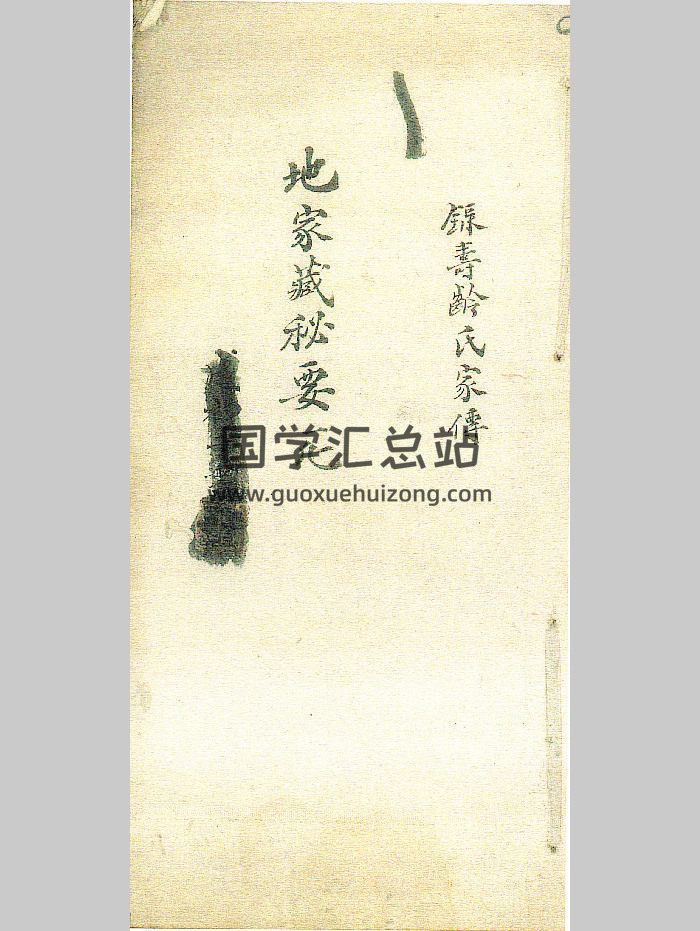 錄壽齡氏家傳
地家藏秘要
国学汇总站
www.guoxuehuizong.com